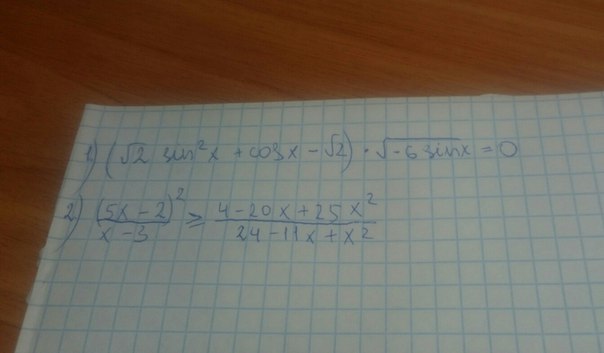 1) (√2 sin²x + cosx − √2) · √(−6 sinx) = 0
2) (5x − 2)²/(x − 3) ≥ (4 − 20x + 25x²)/(24 − 11x + x²)